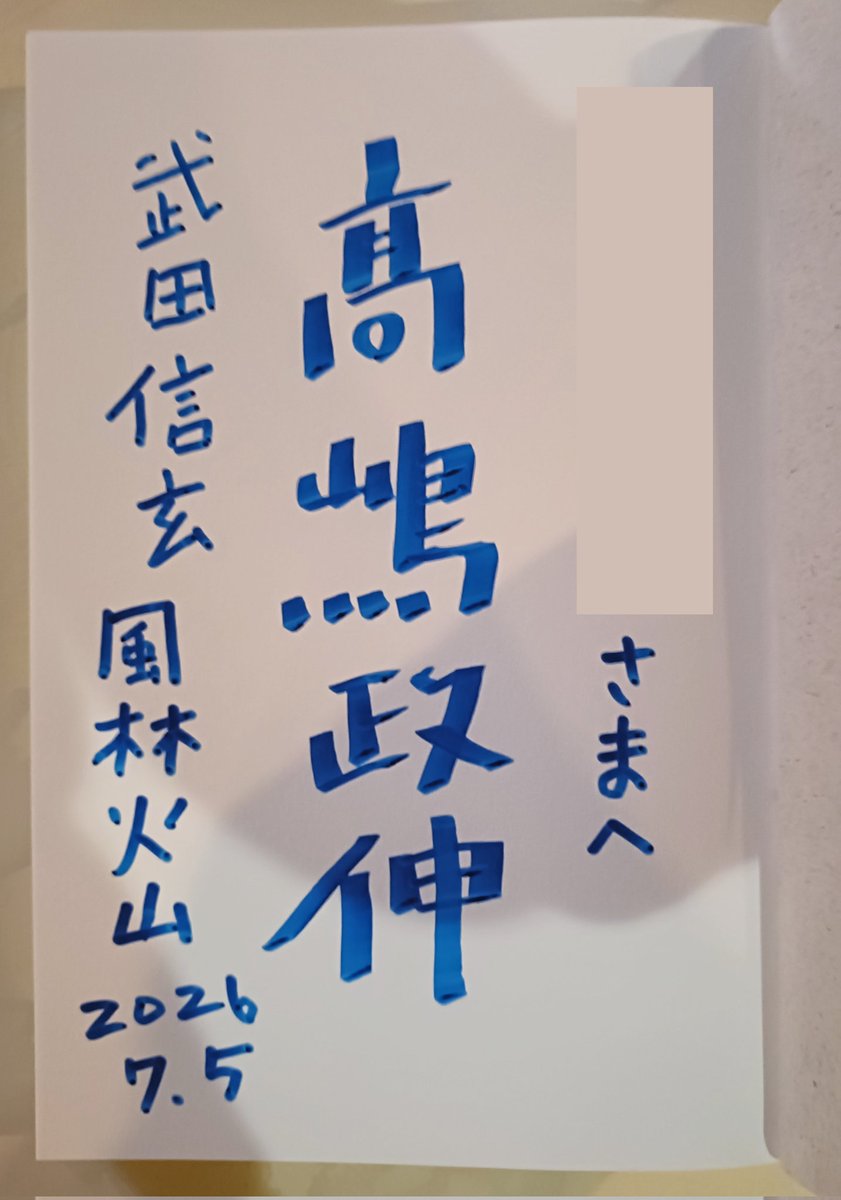 さまへ
髙嶋政伸
武田信玄 風林火山
2026
7.5